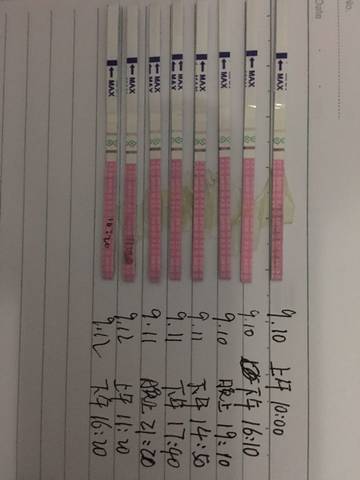 No.
Date
MAX
MAX
MAX
MAX
MAX
MAX
MAX
MAX
9.10 上午 10:00
9.10 下午 16:10
9.10 晚上 19:10
9.11 下午 14:50
9.11 下午 17:40
9.11 晚上 21:20
9.12 上午 11:20
9.12 下午 16:20